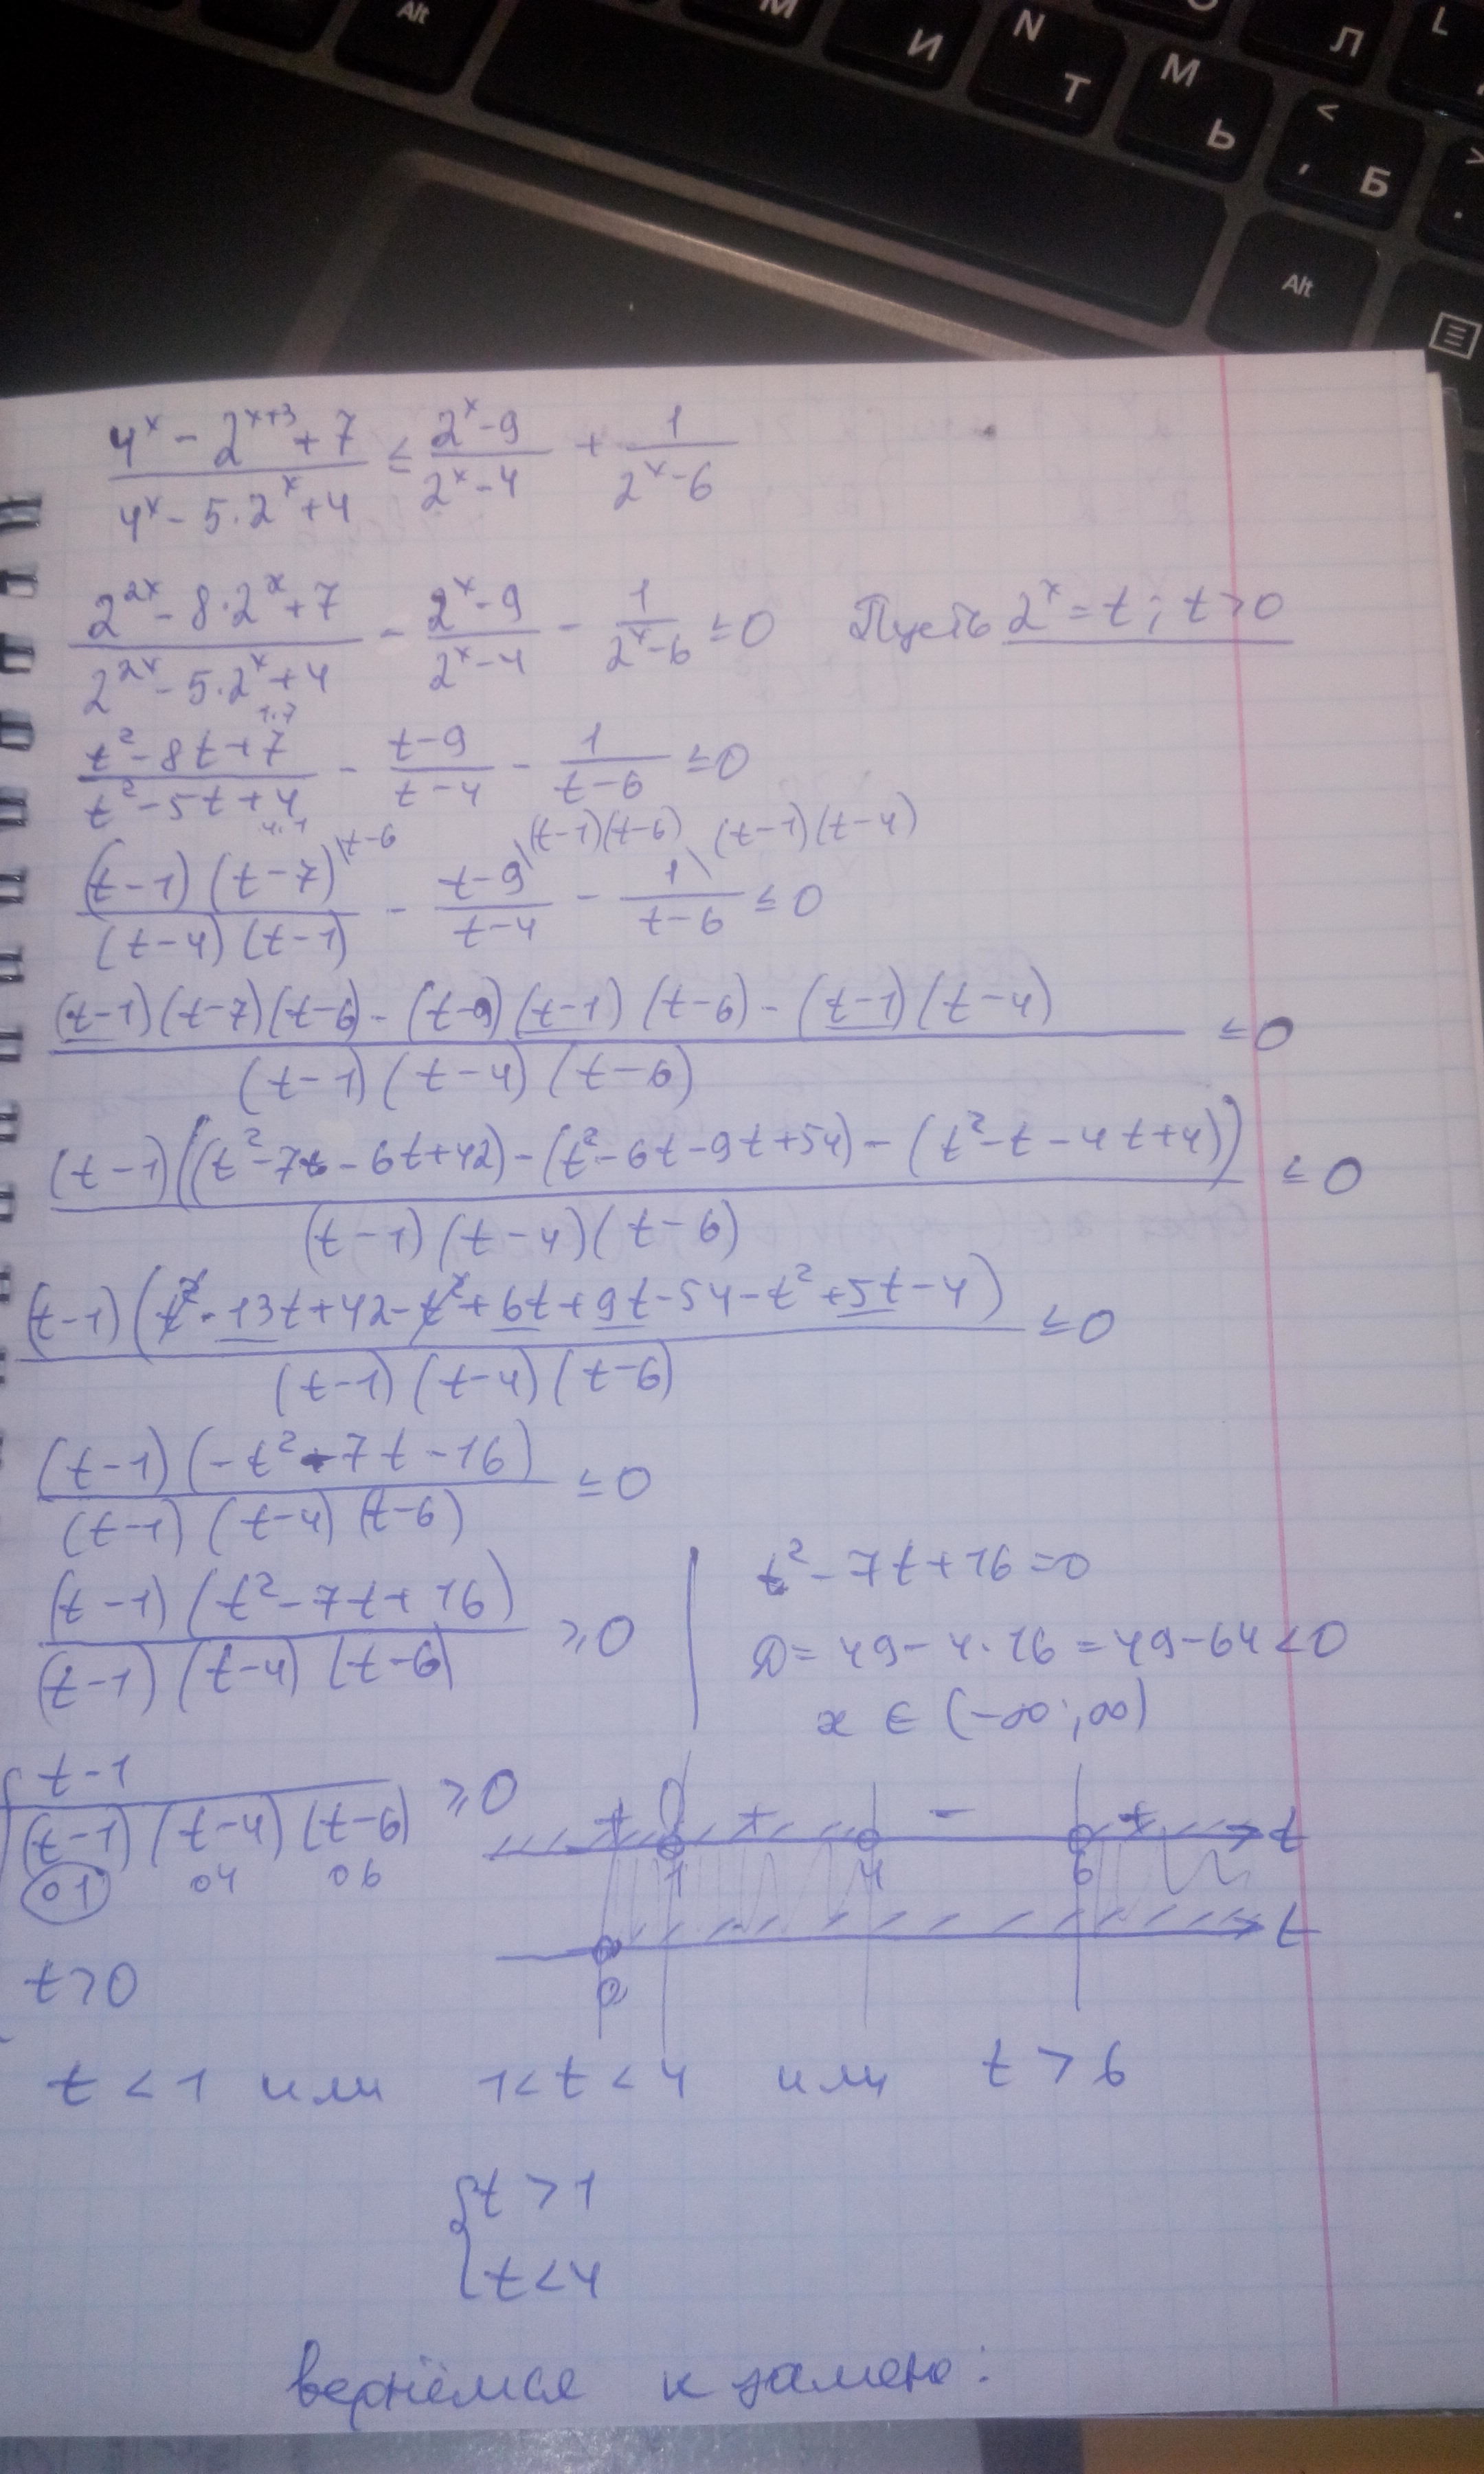 Alt
М
И
N
Т
М
Ь
<
,
Б
Л
L
>
.
Alt
(4^x - 2^(x+3) + 7)/(4^x - 5·2^x + 4) ≤ (2^x - 9)/(2^x - 4) + 1/(2^x - 6)
(2^(2x) - 8·2^x + 7)/(2^(2x) - 5·2^x + 4) - (2^x - 9)/(2^x - 4) - 1/(2^x - 6) ≤ 0 Пусть 2^x = t; t > 0
1·7
(t² - 8t + 7)/(t² - 5t + 4) - (t - 9)/(t - 4) - 1/(t - 6) ≤ 0
4·1
\t-6 \(t-1)(t-6) \(t-1)(t-4)
((t-1)(t-7))/((t-4)(t-1)) - (t-9)/(t-4) - 1/(t-6) ≤ 0
((t-1)(t-7)(t-6) - (t-9)(t-1)(t-6) - (t-1)(t-4))/((t-1)(t-4)(t-6)) ≤ 0
((t-1)((t² - 7t - 6t + 42) - (t² - 6t - 9t + 54) - (t² - t - 4t + 4)))/((t-1)(t-4)(t-6)) ≤ 0
((t-1)(t² - 13t + 42 - t² + 6t + 9t - 54 - t² + 5t - 4))/((t-1)(t-4)(t-6)) ≤ 0
((t-1)(-t² + 7t - 16))/((t-1)(t-4)(t-6)) ≤ 0
((t-1)(t² - 7t + 16))/((t-1)(t-4)(t-6)) ≥ 0
t² - 7t + 16 = 0
D = 49 - 4·16 = 49 - 64 < 0
x ∈ (-∞; ∞)
(t-1)/((t-1)(t-4)(t-6)) ≥ 0
01 04 06
+ + - + t
1 4 6
t
0
t > 0
t < 1 или 1 < t < 4 или t > 6
{ t > 1
t < 4
вернёмся к замене: